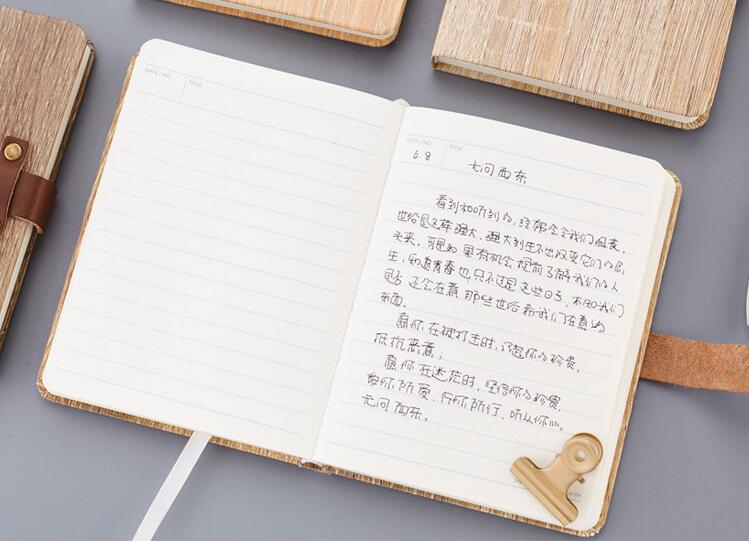 DATE / NO.
TITLE
DATE / NO.
TITLE
6.8
无问西东
看到和听到的,经常会令我们沮丧,
世俗是这样强大,强大到生不出改变它们的念
头来。可是如果有机会提前了解我们的人
生,知道青春也只不过是这些日子,不知我们
是否还会在意那些世俗希我们在意的
东西。
愿你在被打击时,记起你的珍贵,
抵抗恶意;
愿你在迷茫时,坚信你的珍贵,
爱你所爱,行你所行,听从你心,
无问西东。